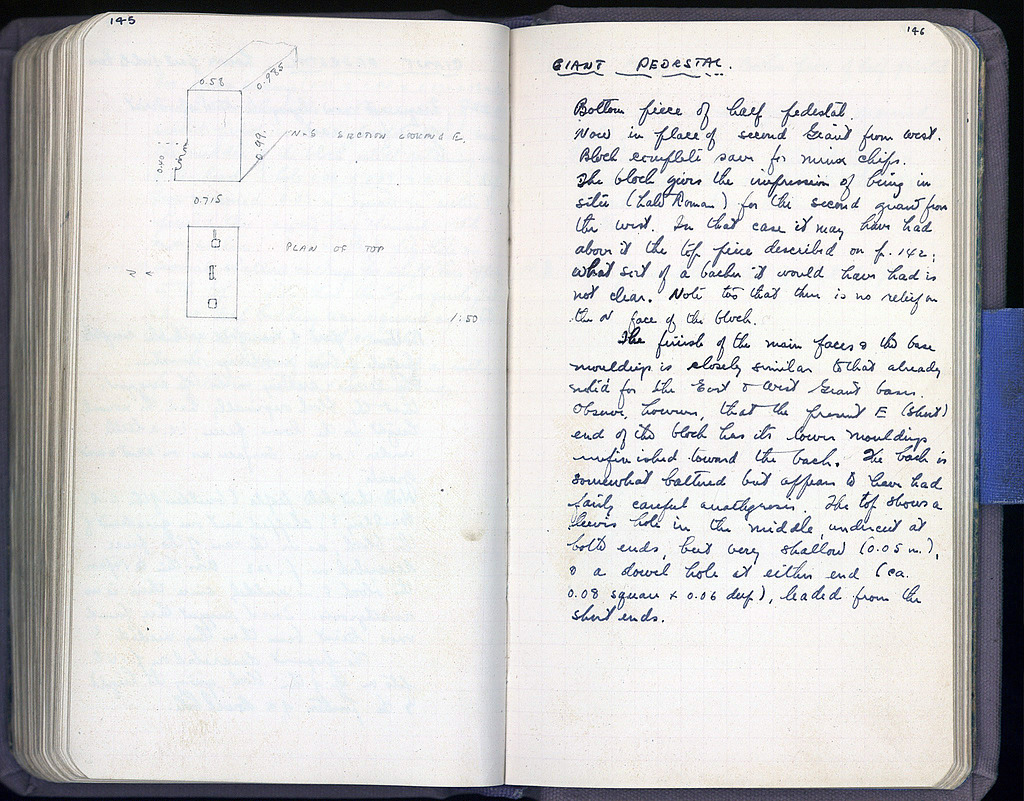 145
0.58
0.985
0.99.
N-S SECTION LOOKING E.
0.40
0.715
PLAN OF TOP
N
1:50
146
GIANT PEDESTAL.
Bottom piece of half pedestal.
Now in place of second Giant from west.
Block complete save for minor chips.
The block gives the impression of being in
situ (Late Roman) for the second giant from
the west. In that case it may have had
above it the top piece described on p. 142;
what sort of a backer it would have had is
not clear. Note too that there is no relief on
the N face of the block.
The finish of the main faces & the base
mouldings is closely similar to that already
noted for the East & West Giant bases.
Observe, however, that the present E (short)
end of the block has its lower mouldings
unfinished toward the back. The back is
somewhat battered but appears to have had
fairly careful anathyrosis. The top shows a
lewis hole in the middle, undercut at
both ends, but very shallow (0.05 m.),
& a dowel hole at either end (ca.
0.08 square x 0.06 deep), leaded from the
short ends.